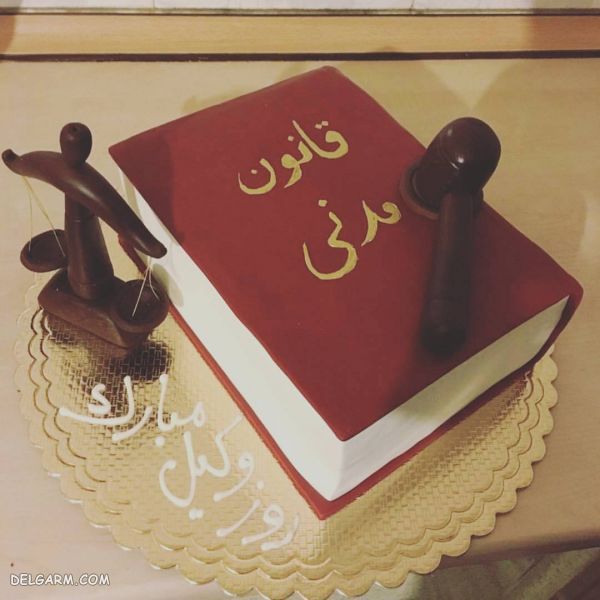 قانون
مدنی
روز وکیل مبارک
DELGARM.COM